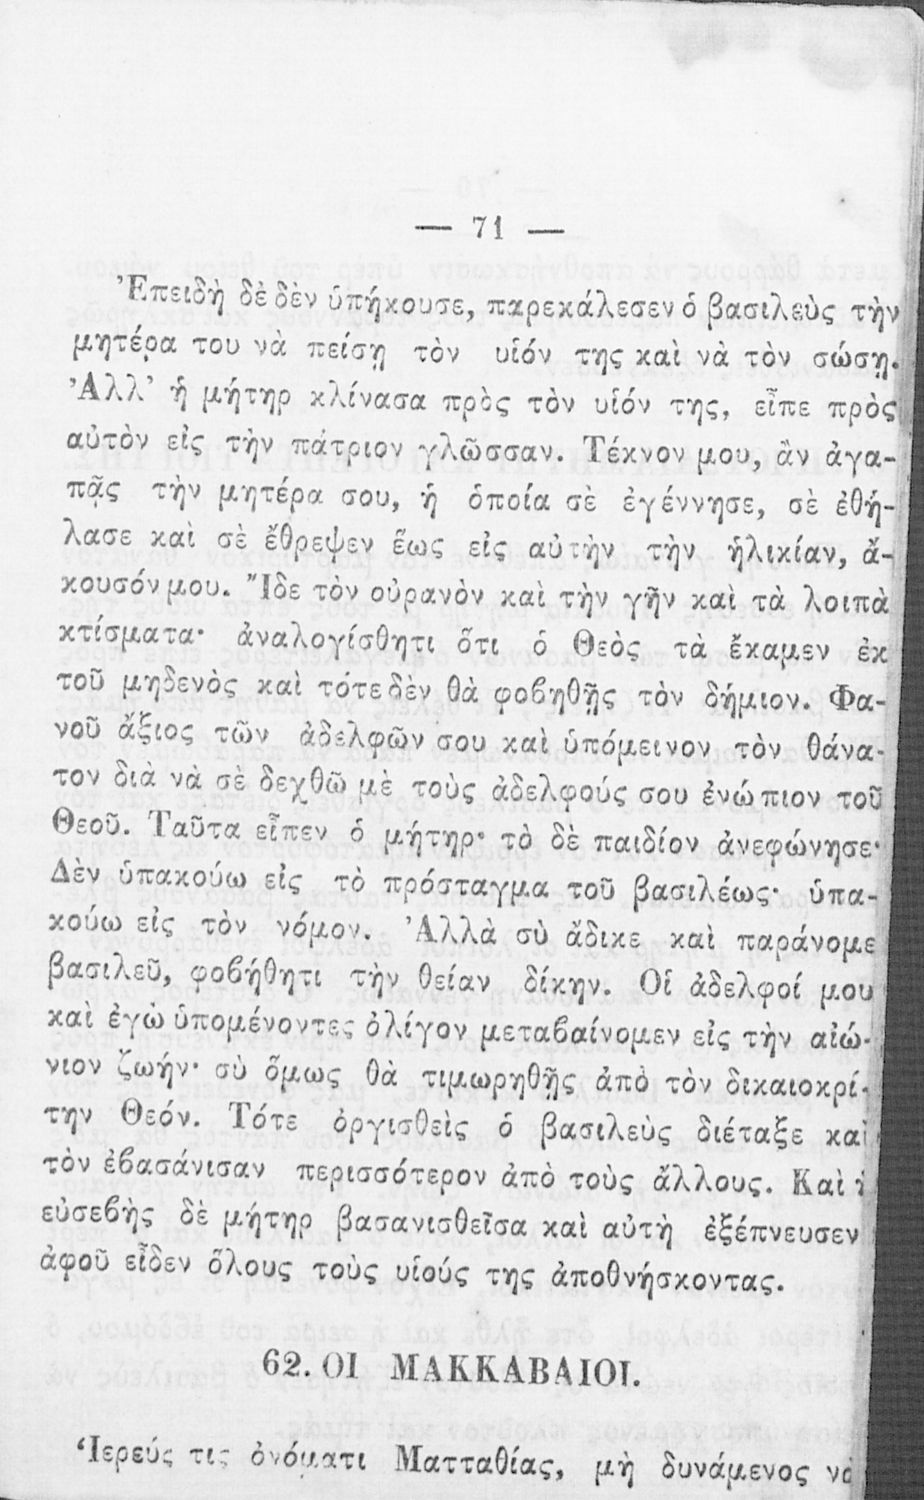 — 71 —
Ἐπειδὴ δὲ δὲν ὑπήκουσε, παρεκάλεσεν ὁ βασιλεὺς τὴν
μητέρα του νὰ πείσῃ τὸν υἱόν της καὶ νὰ τὸν σώσῃ.
Ἀλλ’ ἡ μήτηρ κλίνασα πρὸς τὸν υἱόν της, εἶπε πρὸς
αὐτὸν εἰς τὴν πάτριον γλῶσσαν. Τέκνον μου, ἂν ἀγα-
πᾷς τὴν μητέρα σου, ἡ ὁποία σὲ ἐγέννησε, σὲ ἐθή-
λασε καὶ σὲ ἔθρεψεν ἕως εἰς αὐτὴν τὴν ἡλικίαν, ἄ-
κουσόν μου. Ἴδε τὸν οὐρανὸν καὶ τὴν γῆν καὶ τὰ λοιπὰ
κτίσματα· ἀναλογίσθητι ὅτι ὁ Θεὸς τὰ ἔκαμεν ἐκ
τοῦ μηδενὸς καὶ τότε δὲν θὰ φοβηθῇς τὸν δήμιον. Φα-
νοῦ ἄξιος τῶν ἀδελφῶν σου καὶ ὑπόμεινον τὸν θάνα-
τον διὰ νὰ σὲ δεχθῶ μὲ τοὺς ἀδελφούς σου ἐνώπιον τοῦ
Θεοῦ. Ταῦτα εἶπεν ὁ μήτηρ· τὸ δὲ παιδίον ἀνεφώνησε·
Δὲν ὑπακούω εἰς τὸ πρόσταγμα τοῦ βασιλέως· ὑπα-
κούω εἰς τὸν νόμον. Ἀλλὰ σὺ ἄδικε καὶ παράνομε
βασιλεῦ, φοβήθητι τὴν θείαν δίκην. Οἱ ἀδελφοί μου
καὶ ἐγὼ ὑπομένοντες ὀλίγον μεταβαίνομεν εἰς τὴν αἰώ-
νιον ζωήν· σὺ ὅμως θὰ τιμωρηθῇς ἀπὸ τὸν δικαιοκρί-
την Θεόν. Τότε ὀργισθεὶς ὁ βασιλεὺς διέταξε καὶ
τὸν ἐβασάνισαν περισσότερον ἀπὸ τοὺς ἄλλους. Καὶ
εὐσεβὴς δὲ μήτηρ βασανισθεῖσα καὶ αὐτὴ ἐξέπνευσεν
ἀφοῦ εἶδεν ὅλους τοὺς υἱούς της ἀποθνήσκοντας.
62. ΟΙ ΜΑΚΚΑΒΑΙΟΙ.
Ἱερεύς τις ὀνόματι Ματταθίας, μὴ δυνάμενος νὰ